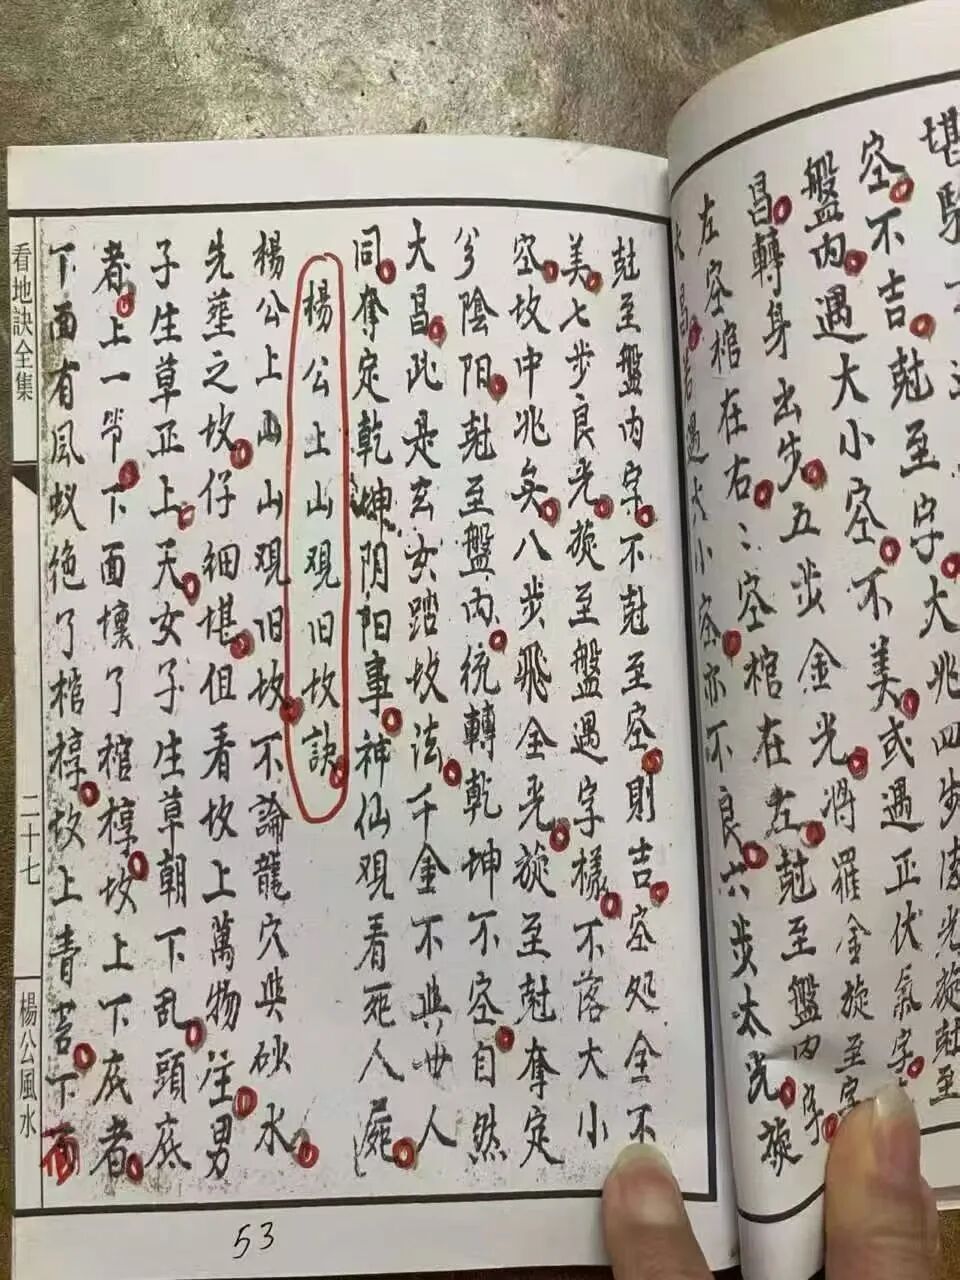 盤內遇大小空不美或遇正伏氣字
昌轉身出步五步金光將羅金旋至字
左空棺在右二空棺在左尅至盤內字
不良六步太光旋
尅至盤內字不尅至空則吉空处全不
美七步良光旋至盤遇字樣不落大小
空坟中兆矣八步飛全光旋至尅奪定
兮陰阳尅至盤內統轉乾坤不空自然
大昌此是玄女踏坟法千金不與世人
同奪定乾坤阴阳事神仙观看死人屍
楊公上山观旧坟訣
楊公上山山观旧坟不論龍穴與砂水
先塟之坟仔細堪但看坟上萬物注男
子生草正上天女子生草朝下乱頭底
者上一節下面壞了棺椁坟上下底者
下面有風蚁绝了棺椁坟上青苔下面
看地訣全集
二十七
楊公風水
53